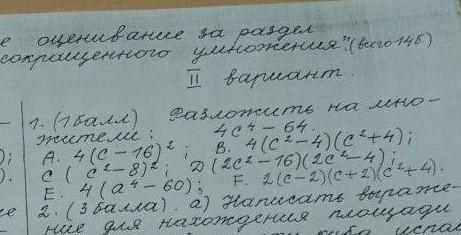 е оценивание за раздел
сокращенного умножения". (всего 14б.)
II вариант.
1. (1 балл) Разложить на мно-
жители: 4c⁴ - 64.
); A. 4(c - 16)²; B. 4(c² - 4)(c² + 4);
). C (c² - 8)²; D (2c² - 16)(2c² - 4);
E. 4(a⁴ - 60); F. 2(c - 2)(c + 2)(c² + 4).
2. (3 балла). а) Написать выраже-
ние для нахождения площади
куба